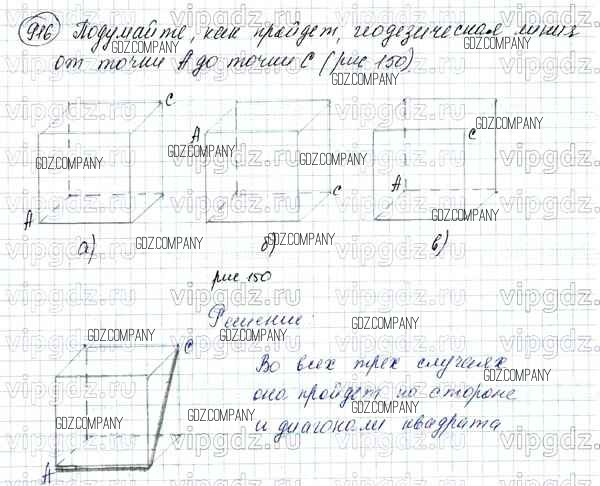 916 Подумайте, как пройдет, геодезическая линия
от точки А до точки С (рис 150).
С
А
С
А
С
А
а)
б)
в)
рис 150
Решение:
С
А
Во всех трех случаях
она пройдет по стороне
и диагонали квадрата
GDZ.COMPANY
vipgdz.ru